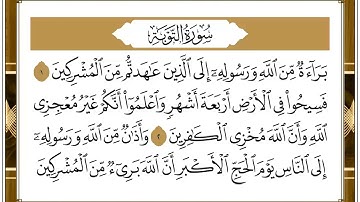 سُورَةُ التَّوْبَةِ
بَرَاءَةٌ مِّنَ اللَّهِ وَرَسُولِهِ إِلَى الَّذِينَ عَاهَدتُّم مِّنَ الْمُشْرِكِينَ ١
فَسِيحُوا فِي الْأَرْضِ أَرْبَعَةَ أَشْهُرٍ وَاعْلَمُوا أَنَّكُمْ غَيْرُ مُعْجِزِي
اللَّهِ وَأَنَّ اللَّهَ مُخْزِي الْكَافِرِينَ ٢ وَأَذَانٌ مِّنَ اللَّهِ وَرَسُولِهِ
إِلَى النَّاسِ يَوْمَ الْحَجِّ الْأَكْبَرِ أَنَّ اللَّهَ بَرِيءٌ مِّنَ الْمُشْرِكِينَ